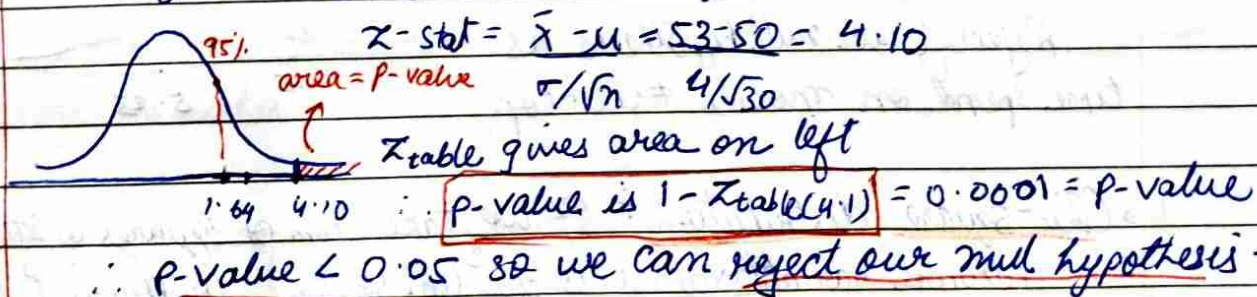 95%
z-stat = x̄ - u = 53-50 = 4.10
σ/√n 4/√30
area = P-value
Ztable gives area on left
1.64 4.10 ∴ p-value is 1 - Ztable(4.1) = 0.0001 = P-value
∴ p-value < 0.05 so we can reject our null hypothesis.